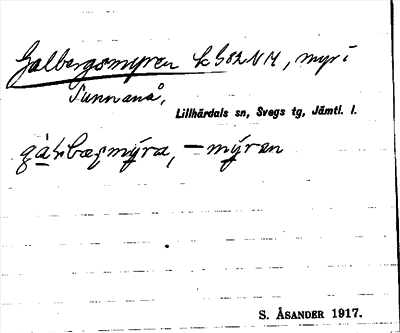 Galbergsmyren k G82NM, myr i
Sunnanå,
Lillhärdals sn, Svegs tg, Jämtl. l.
gàɫbæʂmýra, -mýrən
S. ÅSANDER 1917.